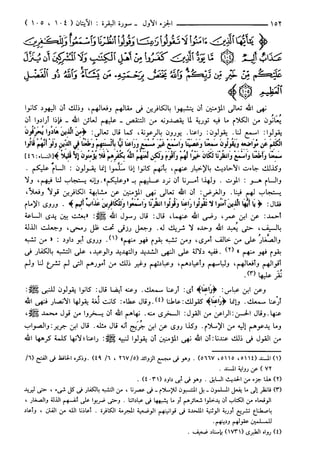 ١٥٢ الجزء الأول ـ سورة البقرة : الآيتان ( ١٠٤ ، ١٠٥ )
﴿ يَا أَيُّهَا الَّذِينَ آمَنُوا لَا تَقُولُوا رَاعِنَا وَقُولُوا انظُرْنَا وَاسْمَعُوا
وَلِلْكَافِرِينَ عَذَابٌ أَلِيمٌ مَا يَوَدُّ الَّذِينَ كَفَرُوا مِنْ أَهْلِ الْكِتَابِ وَلَا الْمُشْرِكِينَ أَن يُنَزَّلَ
عَلَيْكُم مِّنْ خَيْرٍ مِّن رَّبِّكُمْ وَاللَّهُ يَخْتَصُّ بِرَحْمَتِهِ مَن يَشَاءُ وَاللَّهُ ذُو الْفَضْلِ
الْعَظِيمِ ﴾
نهى الله تعالى المؤمنين أن يتشبهوا بالكافرين فى مقالهم وفعالهم، وذلك أن اليهود كانوا
يُعَانُون من الكلام ما فيه تورية لما يقصدونه من التنقص ـ عليهم لعائن الله ـ فإذا أرادوا أن
يقولوا: اسمع لنا. يقولون: راعنا. يورون بالرعونة، كما قال تعالى: ﴿مِنَ الَّذِينَ هَادُوا يُحَرِّفُونَ
الْكَلِمَ عَن مَّوَاضِعِهِ وَيَقُولُونَ سَمِعْنَا وَعَصَيْنَا وَاسْمَعْ غَيْرَ مُسْمَعٍ وَرَاعِنَا لَيًّا بِأَلْسِنَتِهِمْ وَطَعْنًا فِي الدِّينِ وَلَوْ أَنَّهُمْ قَالُوا
سَمِعْنَا وَأَطَعْنَا وَاسْمَعْ وَانظُرْنَا لَكَانَ خَيْرًا لَّهُمْ وَأَقْوَمَ وَلَكِن لَّعَنَهُمُ اللَّهُ بِكُفْرِهِمْ فَلَا يُؤْمِنُونَ إِلَّا قَلِيلًا﴾ [النساء: ٤٦]
وكذلك جاءت الأحاديث بالإخبار عنهم، بأنهم كانوا إذا سَلَّموا إنما يقـولون : السـامُ عليكم .
والسـام هـو : الموت . ولهذا أمـرنا أن نرد عـليهم بـ «وعليكم». وإنه يستجاب لنا فيهم، ولا
يستجاب لهم فينا. والغرض: أن الله تعالى نهى المؤمنين عن مشابهة الكافرين قولاً وفعلاً،
فقال: ﴿ يَا أَيُّهَا الَّذِينَ آمَنُوا لا تَقُولُوا رَاعِنَا وَقُولُوا انظُرْنَا وَاسْمَعُوا وَلِلْكَافِرِينَ عَذَابٌ أَلِيمٌ ﴾ . وروى الإمام
أحمد: عن ابن عمر، رضى الله عنهما، قال: قال رسول الله ﷺ: «بعثت بين يدى الساعة
بالسيف، حتى يُعبد الله وحده لا شريك له، وجعل رزقى تحت ظل رمحى، وجعلت الذلة
والصَّغار على من خالف أمرى، ومن تشبه بقوم فهو منهم»(١). وروى أبو داود : « من تشبه
بقوم فهو منهم »(٢). ففيه دلالة على النهى الشديد والتهديد والوعيد، على التشبه بالكفار فى
أقوالهم وأفعالهم، ولباسهم وأعيادهم، وعباداتهم وغير ذلك من أمورهم التى لم تشرع لنا ولم
نُقَر عليها(٣).
وعن ابن عباس: ﴿رَاعِنَا﴾ أى: أرعنا سمعك. وعنه أيضا قال: كانوا يقولون للنبى ﷺ:
أرعنا سمعك. وإنما ﴿رَاعِنَا﴾ كقولك: عاطنا(٤). وقال عطاء: كانت لُغة يقولها الأنصار فنهى الله
عنها. وقال الحسن: الراعن من القول: السخرى منه، نهاهم الله أن يسخروا من قول محمد ﷺ،
وما يدعوهم إليه من الإسلام. وكذا روى عن ابن جُريج أنه قال مثله. قال ابن جرير: والصواب
من القول فى ذلك عندنا: أن الله نهى المؤمنين أن يقولوا لنبيه ﷺ: راعنا؛ لأنها كلمة كرهها الله
(١) المسند (٥١١٤، ٥١١٥، ٥٦٦٧). وهو فى مجمع الزوائد (٥/ ٢٦٧، ٦/ ٤٩) . وذكره الحافظ فى الفتح (٦/
٧٢) عن رواية المسند .
(٢) هذا جزء من الحديث السابق . وهو فى أبى داود (٤٠٣١) .
(٤) رواه الطبرى (١٧٣١) بإسناد ضعيف .